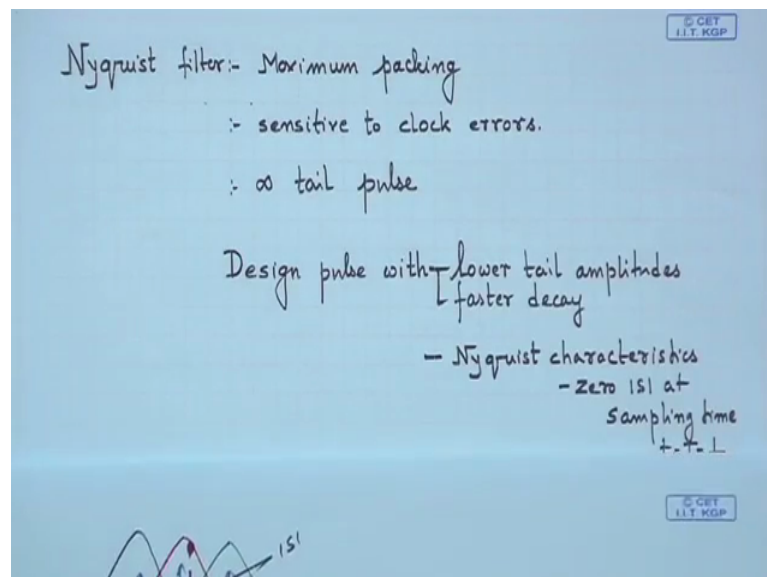 © CET
I.I.T. KGP
Nyquist filter:- Maximum packing
:- sensitive to clock errors.
:- ∞ tail pulse
Design pulse with lower tail amplitudes
faster decay
- Nyquist characteristics
- zero ISI at
sampling time
ISI
© CET
I.I.T. KGP